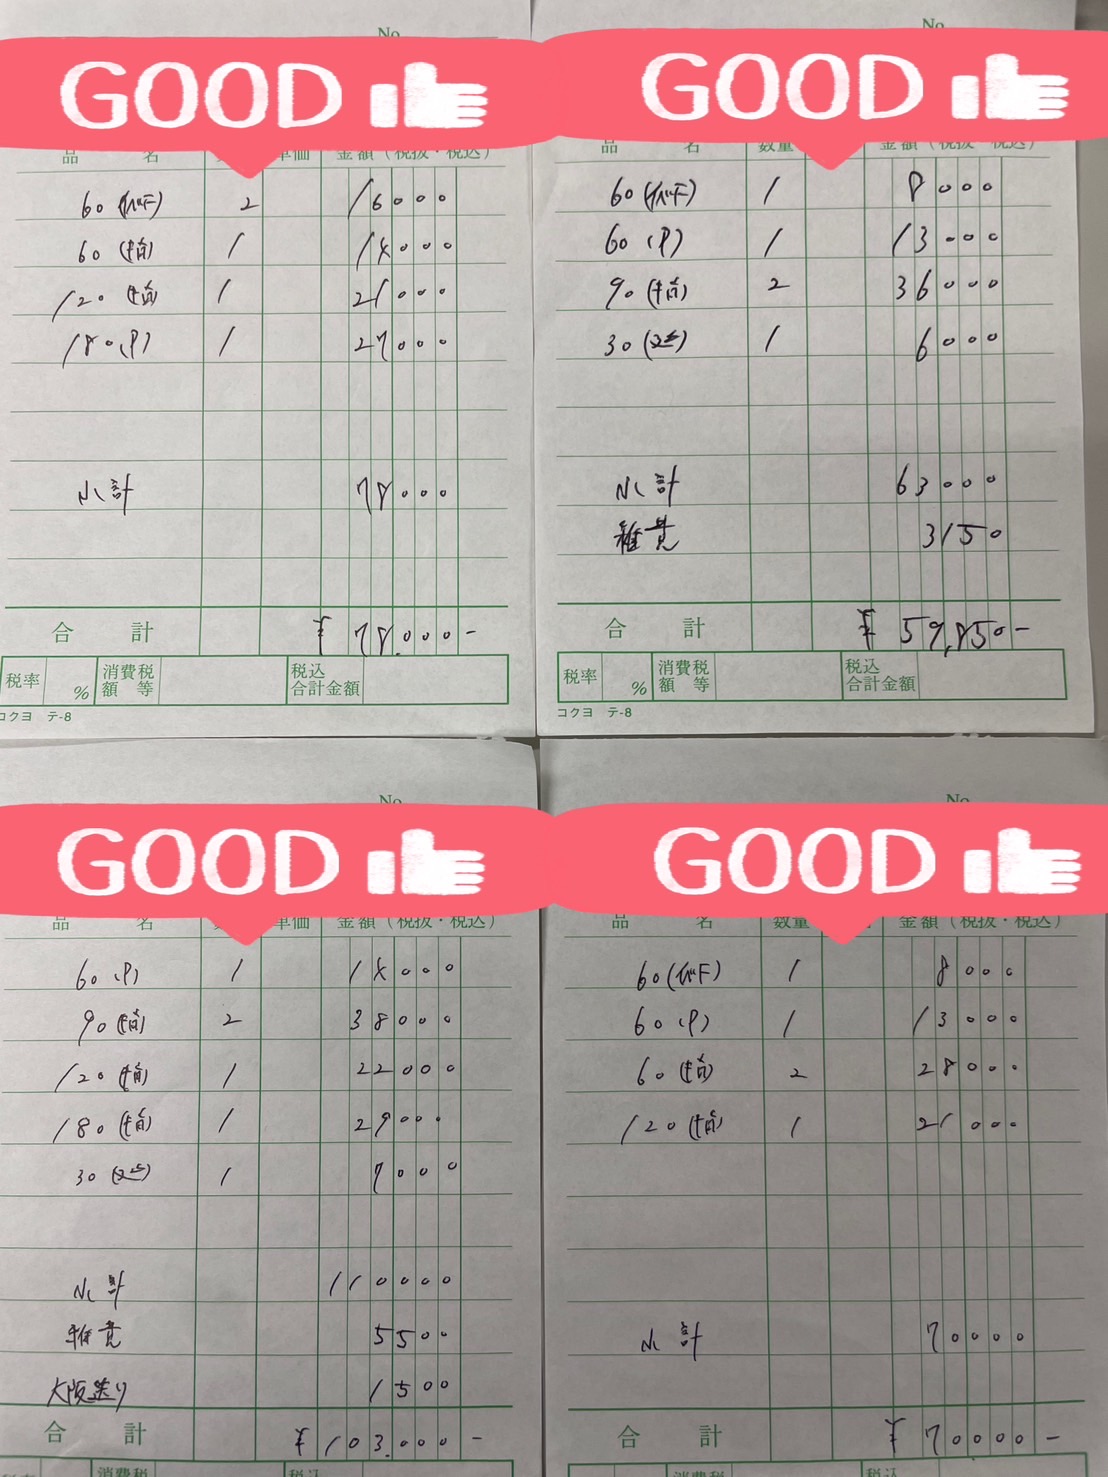 No.
GOOD
品 名 単価 金額(税抜・税込)
60(イベF) 2 16000
60(指) 1 14000
120(指) 1 21000
180(P) 1 27000
小計 78000
合計 ¥78,000-
税率 % 消費税額等 税込合計金額
コクヨ テ-8
No.
GOOD
品 名 数量 金額(税抜・税込)
60(イベF) 1 8000
60(P) 1 13000
90(指) 2 36000
30(延) 1 6000
小計 63000
雑費 3150
合計 ¥59,850-
税率 % 消費税額等 税込合計金額
コクヨ テ-8
No.
GOOD
品 名 単価 金額(税抜・税込)
60(P) 1 14000
90(指) 2 38000
120(指) 1 22000
180(指) 1 29000
30(延) 1 7000
小計 110000
雑費 5500
大阪送り 1500
合計 ¥103,000-
消費税 税込
No.
GOOD
品 名 数量 金額(税抜・税込)
60(イベF) 1 8000
60(P) 1 13000
60(指) 2 28000
120(指) 1 21000
小計 70000
合計 ¥70000-
消費税 税込